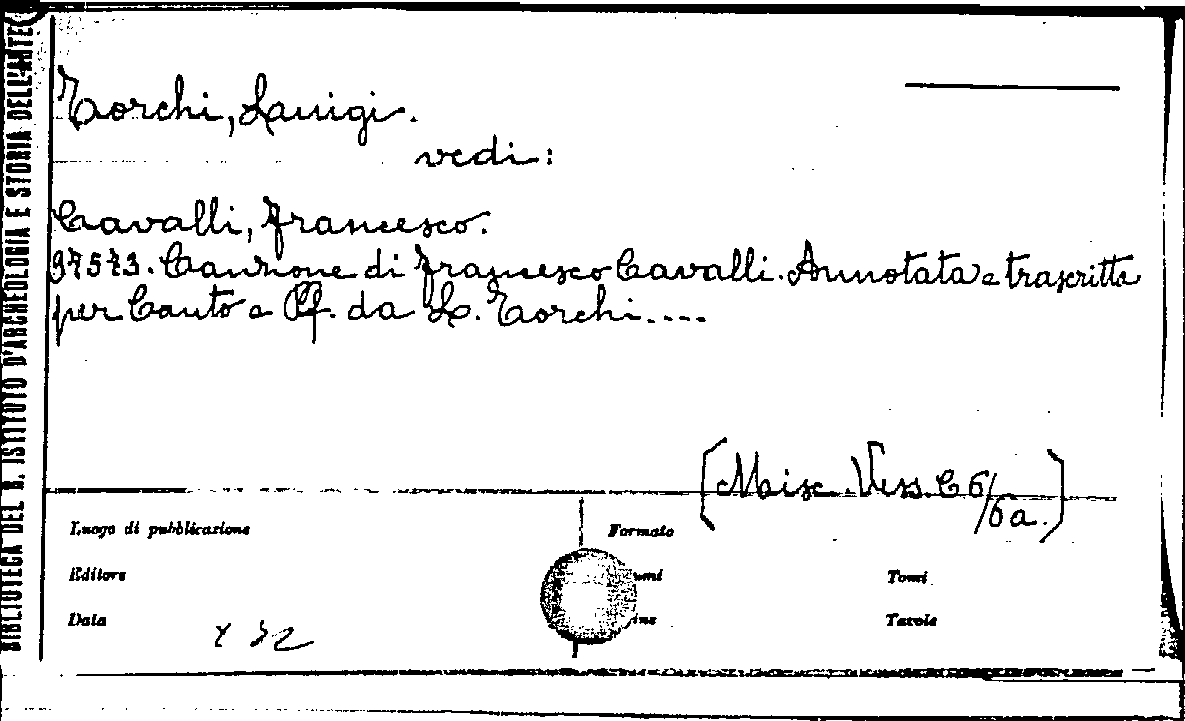 BIBLIOTECA DEL R. ISTITUTO D'ARCHEOLOGIA E STORIA DELL'ARTE
Torchi, Luigi.
vedi:
Cavalli, Francesco.
97573. Canzone di Francesco Cavalli. Annotata e trascritta
per Canto e Pf. da L. Torchi....
[Misc. Vess. C 6/6a.]
Luogo di pubblicazione
Formato
Editore
Tomi
Data
Tavole